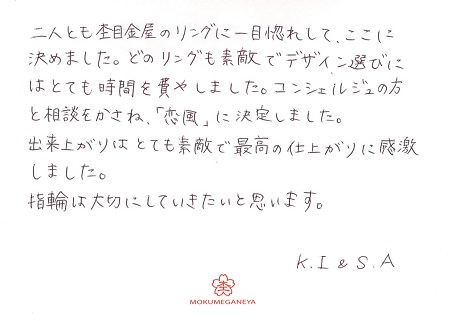 二人とも杢目金屋のリングに一目惚れして、ここに
決めました。どのリングも素敵でデザイン選びに
はとても時間を費やしました。コンシェルジュの方
と相談をかさね、「恋風」に決定しました。
出来上がりはとても素敵で最高の仕上がりに感激
しました。
指輪は大切にしていきたいと思います。
K.I & S.A
MOKUMEGANEYA